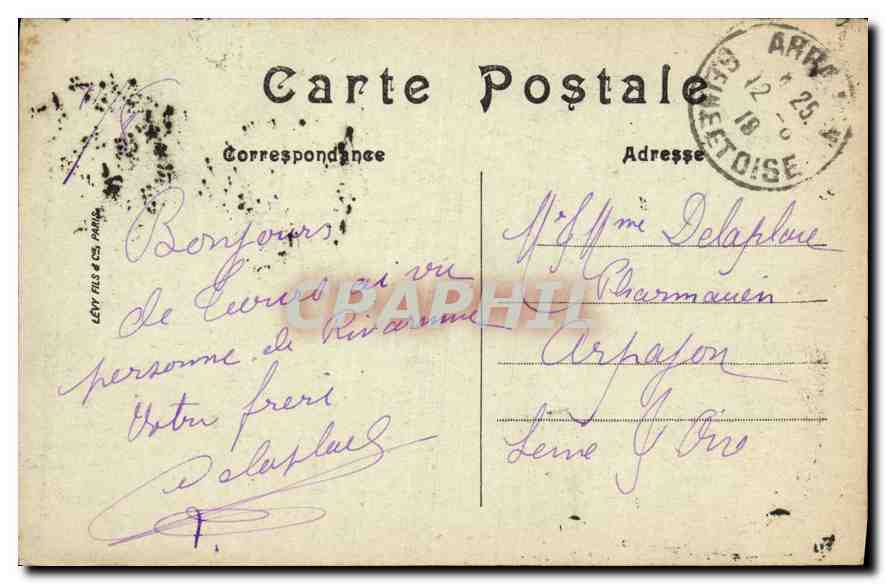 Carte Postale
Correspondance
Adresse
ARPA
12 - 8
25
18
SEINE ET OISE
LÉVY FILS & Cie, PARIS
Bonjours
de ai vu
personne de
Votre frere
Delaplace
Mr & Mme Delaplace
Pharmacien
Arpajon
Seine & Oise
CPAPHIL